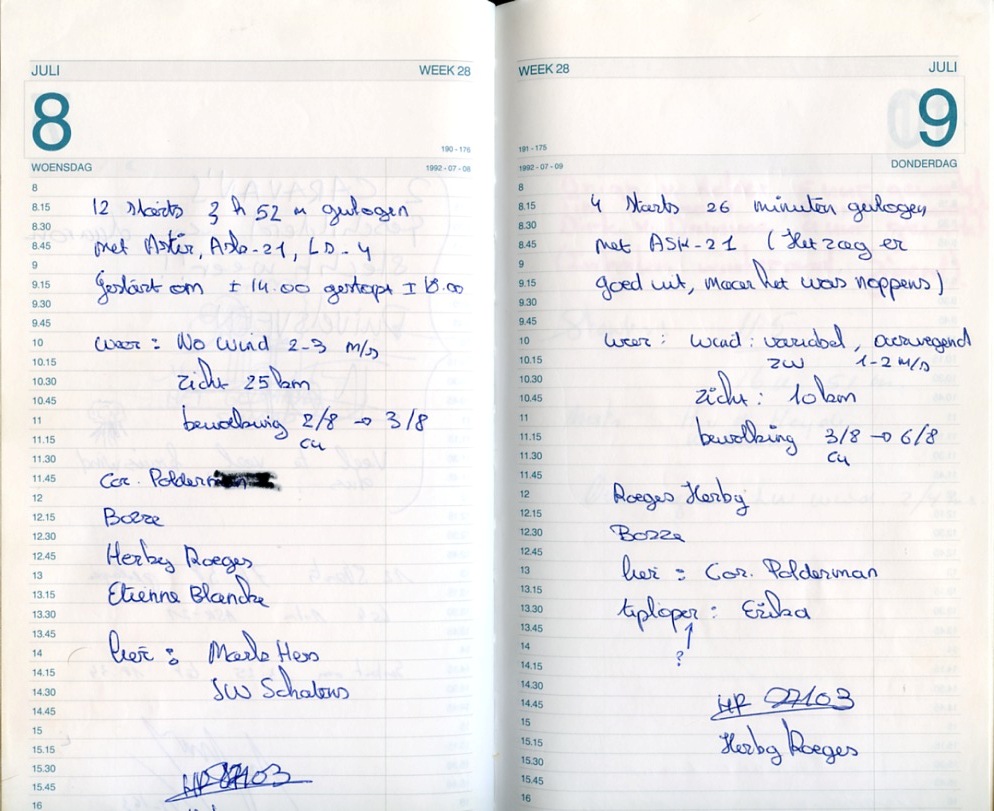 JULI WEEK 28
8
190 - 176
WOENSDAG 1992 - 07 - 08
8
8.15 12 starts 3 h 52 m gevlogen
8.30
8.45 met Astir, Ask-21, LS-4
9
9.15 Gestart om ± 14.00 gestopt ± 18.00
9.30
9.45
10 weer : NO wind 2-3 m/s
10.15
10.30 zicht 25 km
10.45
11 bewolking 2/8 → 3/8
11.15 cu
11.30
11.45 Cor. Polderman
12
12.15 Bozze
12.30
12.45 Herby Roeges
13
13.15 Etienne Blancke
13.30
13.45
14 lier : Mark Hess
14.15
14.30 JW Schatens
14.45
15
15.15
15.30
15.45 HR 27103
16
WEEK 28 JULI
9
191 - 175
1992 - 07 - 09 DONDERDAG
8
8.15 4 starts 26 minuten gevlogen
8.30
8.45 met ASK-21 (Het zag er
9
9.15 goed uit, maar het was noppens)
9.30
9.45
10 weer : wind : variabel, overwegend
10.15 ZW 1-2 m/s
10.30
10.45 zicht : 10 km
11
11.15 bewolking 3/8 → 6/8
11.30 cu
11.45
12 Roeges Herby
12.15
12.30 Bozze
12.45
13 lier : Cor. Polderman
13.15
13.30 tiploper : Erika
13.45
14 ?
14.15
14.30
14.45 HR 27103
15
15.15 Herby Roeges
15.30
15.45
16